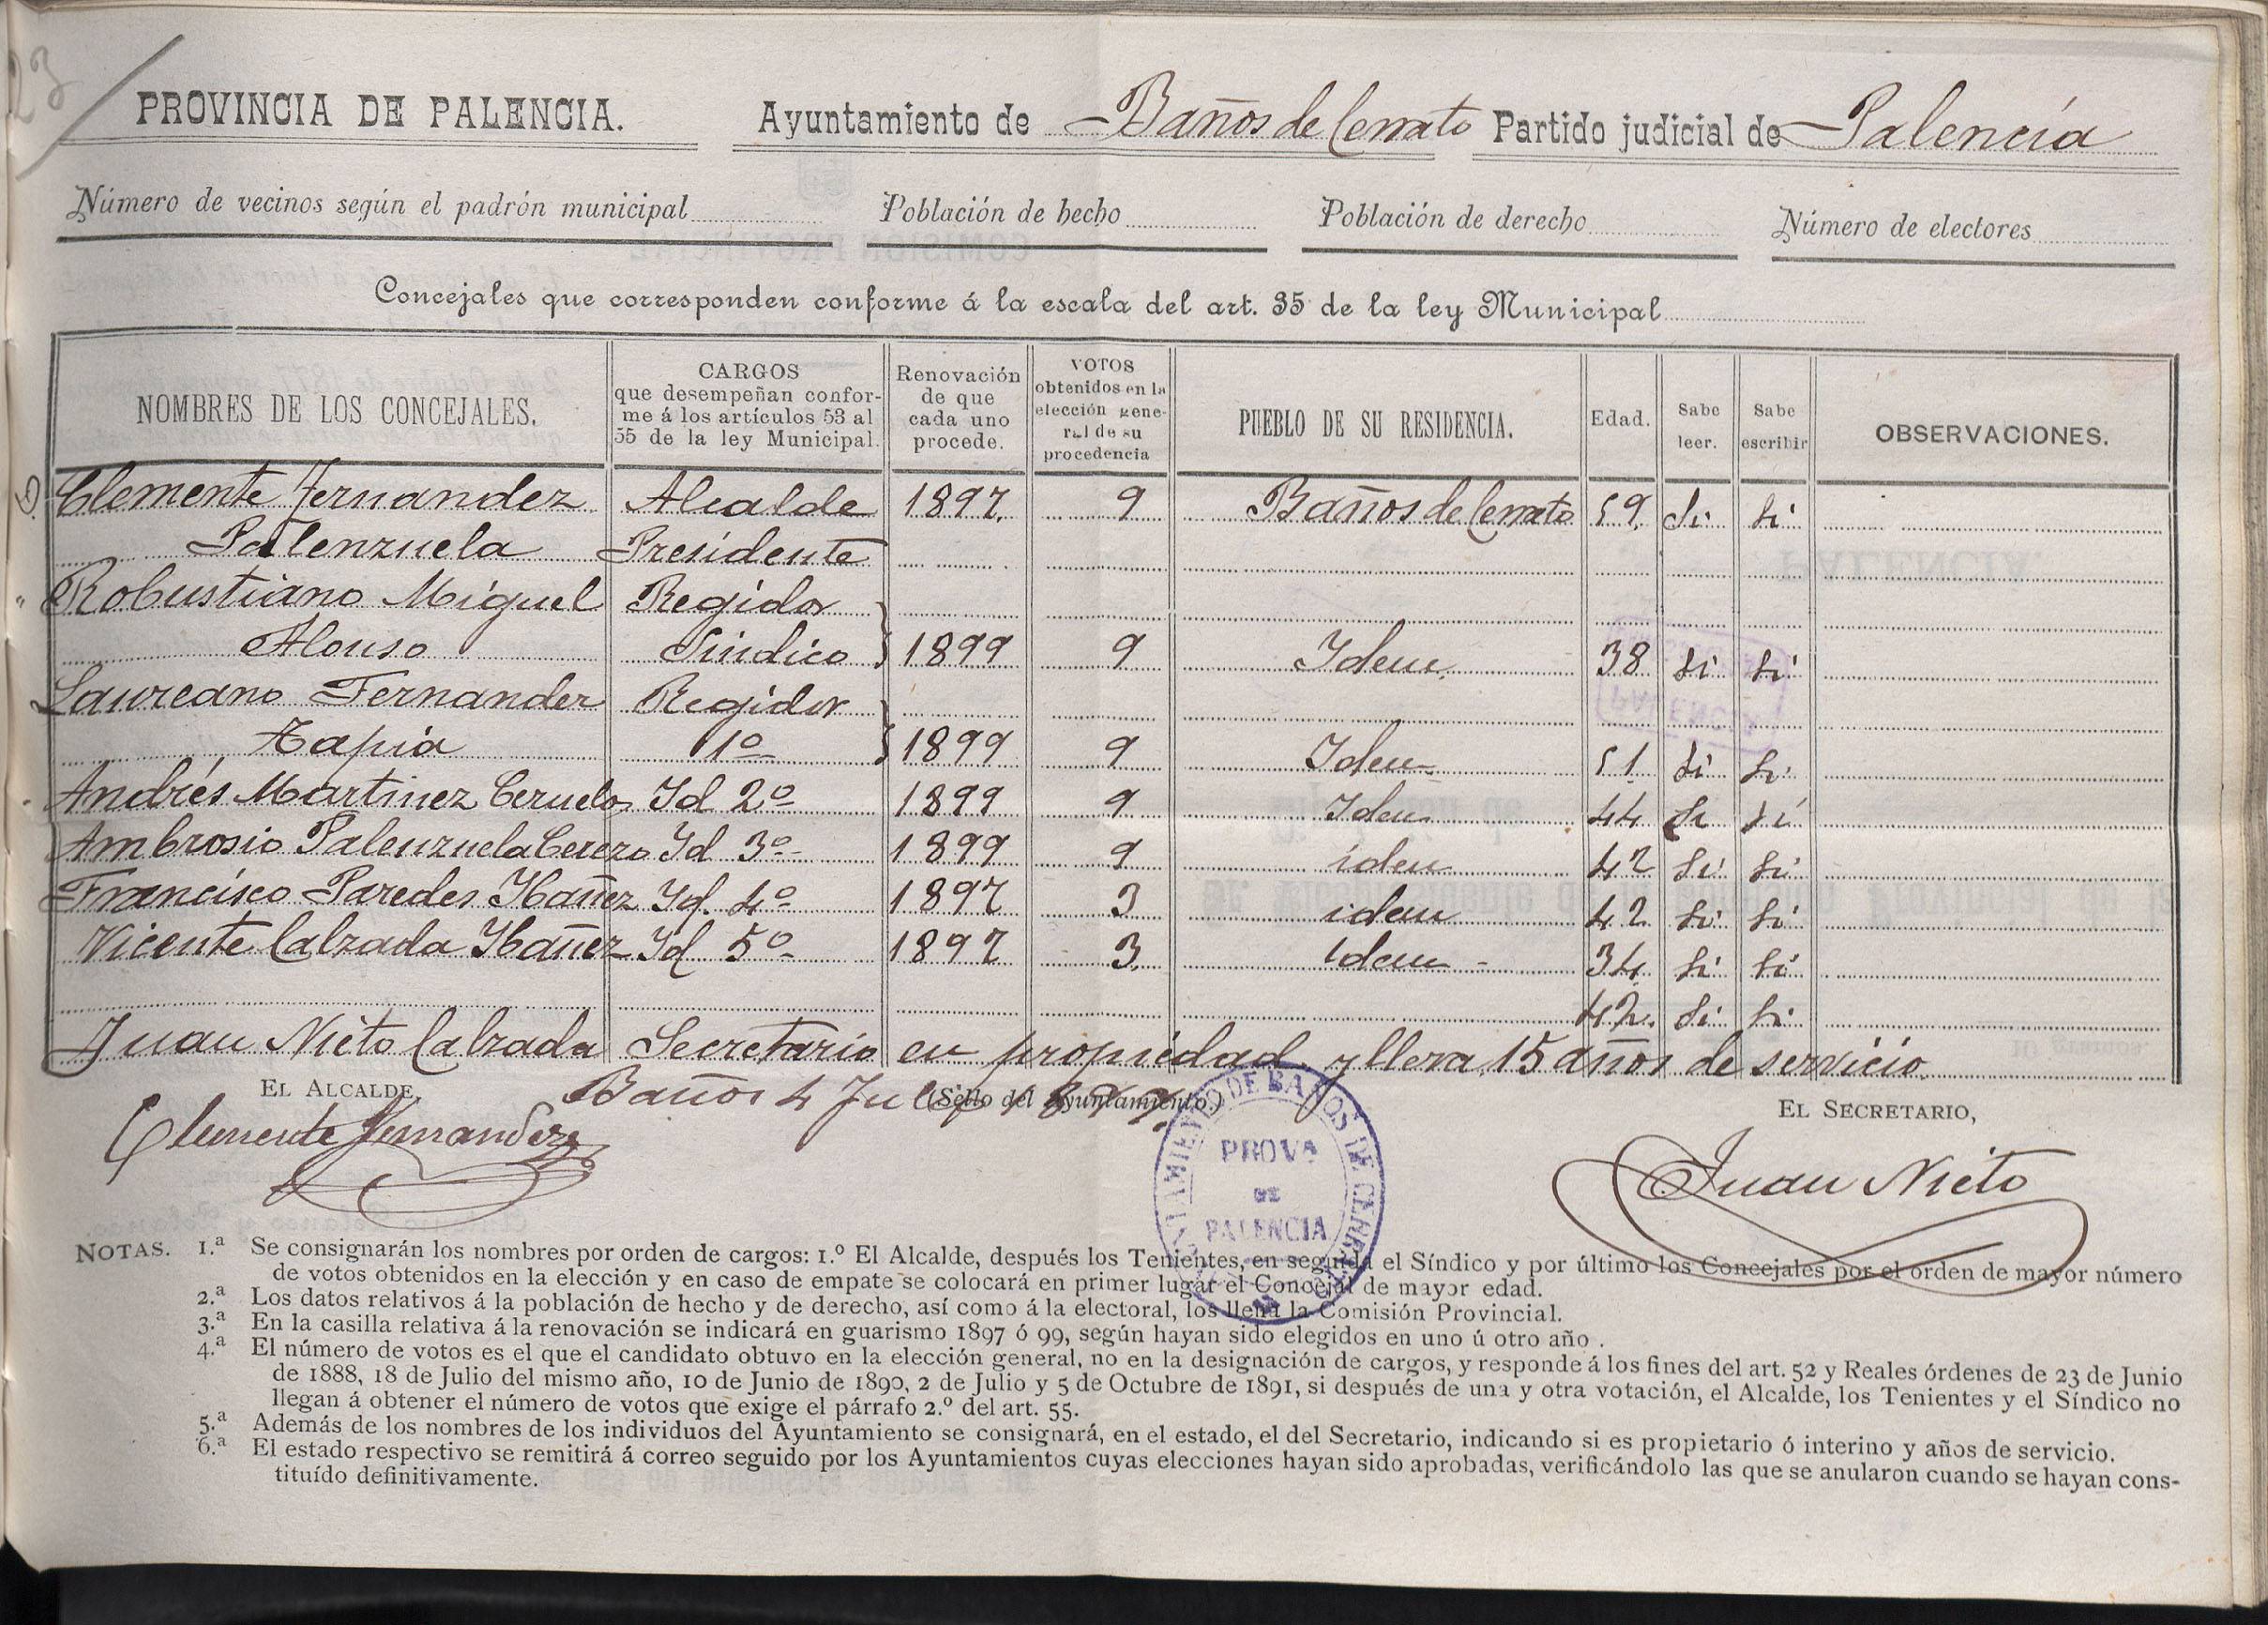 23
PROVINCIA DE PALENCIA. Ayuntamiento de Baños de Cerrato Partido judicial de Palencia
Número de vecinos según el padrón municipal Población de hecho Población de derecho Número de electores
Concejales que corresponden conforme á la escala del art. 35 de la ley Municipal
NOMBRES DE LOS CONCEJALES. CARGOS que desempeñan conforme á los artículos 53 al 55 de la ley Municipal. Renovación de que cada uno procede. VOTOS obtenidos en la elección general de su procedencia PUEBLO DE SU RESIDENCIA. Edad. Sabe leer. Sabe escribir OBSERVACIONES.
Clemente Fernandez Alcalde 1897 9 Baños de Cerrato 59 Si Si
Palenzuela Presidente
Robustiano Miguel Regidor
Alonso Sindico 1899 9 Idem 38 Si Si
Laureano Fernandez Regidor
Tapia 1º 1899 9 Idem 51 Si Si
Andrés Martinez Ceruelos Id 2º 1899 9 Idem 44 Si Si
Ambrosio Palenzuela Cerezo Id 3º 1899 9 idem 42 Si Si
Francisco Paredes Ibañez Id. 4º 1897 3 idem 42 Si Si
Vicente Calzada Ibañez Id 5º 1897 3 idem 34 Si Si
42 Si Si
Juan Nieto Calzada Secretario en propiedad y lleva 15 años de servicio
EL ALCALDE, Baños 4 Julio (Sello del Ayuntamiento.) EL SECRETARIO,
Clemente Fernandez
Juan Nieto
AYUNTAMIENTO DE BAÑOS DE CERRATO
PROVA
DE
PALENCIA
NOTAS. 1.ª Se consignarán los nombres por orden de cargos: 1.º El Alcalde, después los Tenientes, en seguida el Síndico y por último los Concejales por el orden de mayor número
de votos obtenidos en la elección y en caso de empate se colocará en primer lugar el Concejal de mayor edad.
2.ª Los datos relativos á la población de hecho y de derecho, así como á la electoral, los llena la Comisión Provincial.
3.ª En la casilla relativa á la renovación se indicará en guarismo 1897 ó 99, según hayan sido elegidos en uno ú otro año.
4.ª El número de votos es el que el candidato obtuvo en la elección general, no en la designación de cargos, y responde á los fines del art. 52 y Reales órdenes de 23 de Junio
de 1888, 18 de Julio del mismo año, 10 de Junio de 1890, 2 de Julio y 5 de Octubre de 1891, si después de una y otra votación, el Alcalde, los Tenientes y el Síndico no
llegan á obtener el número de votos que exige el párrafo 2.º del art. 55.
5.ª Además de los nombres de los individuos del Ayuntamiento se consignará, en el estado, el del Secretario, indicando si es propietario ó interino y años de servicio.
6.ª El estado respectivo se remitirá á correo seguido por los Ayuntamientos cuyas elecciones hayan sido aprobadas, verificándolo las que se anularon cuando se hayan cons-
tituído definitivamente.